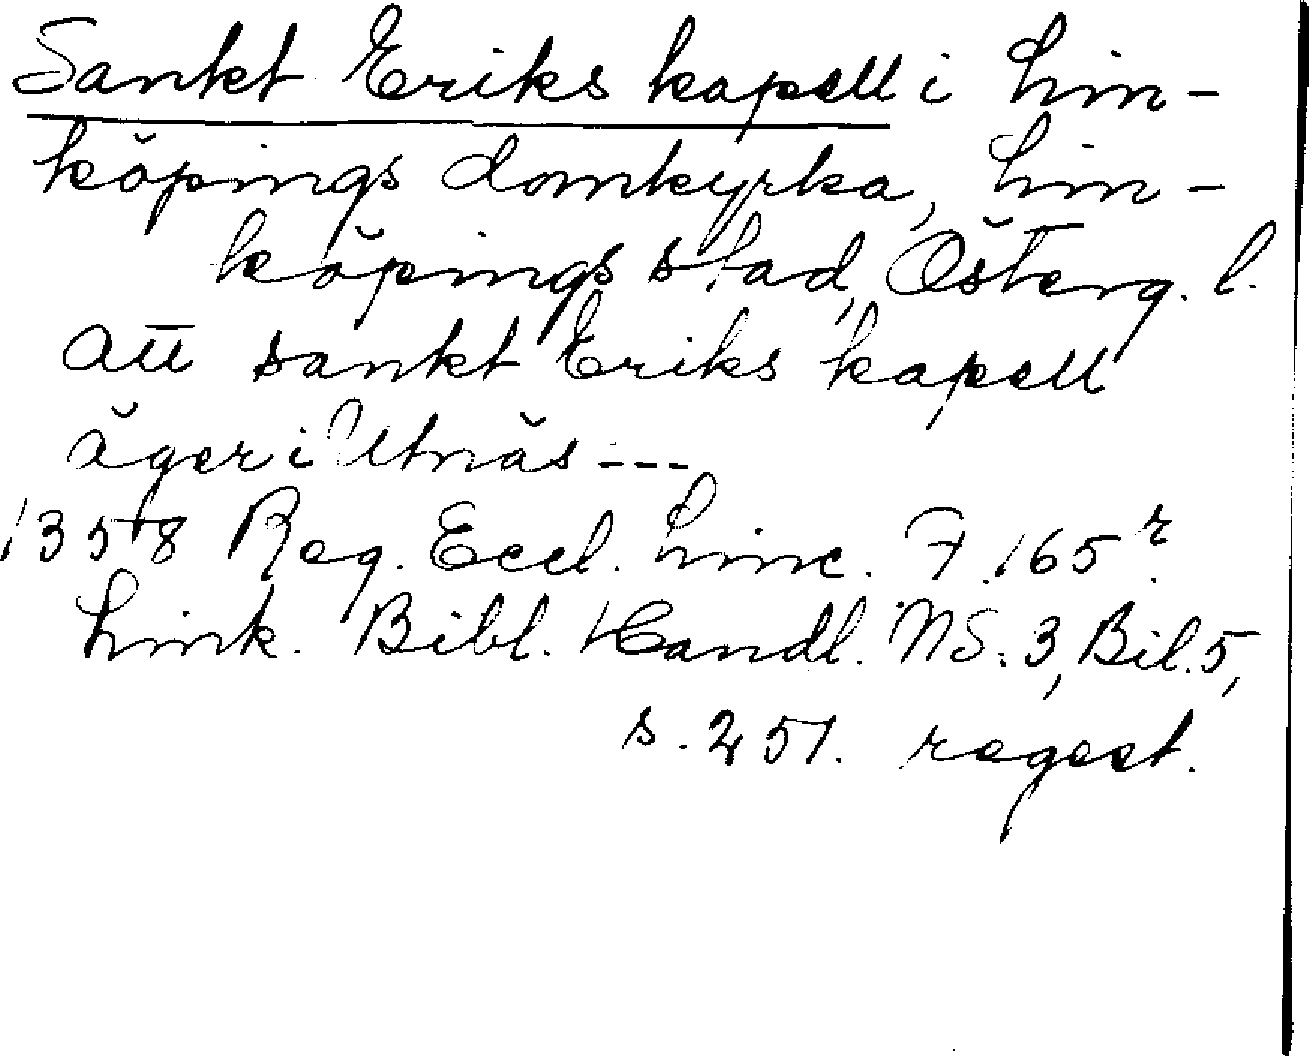 Sankt Eriks kapell i Lin-
köpings domkyrka, Lin-
köpings stad, Österg. l.
att sankt Eriks kapell
äger i Utnäs ---
1358 Reg. Eccl. Linc. F. 165r.
Link. Bibl. Handl. NS. 3, Bil. 5,
s. 251. regest.